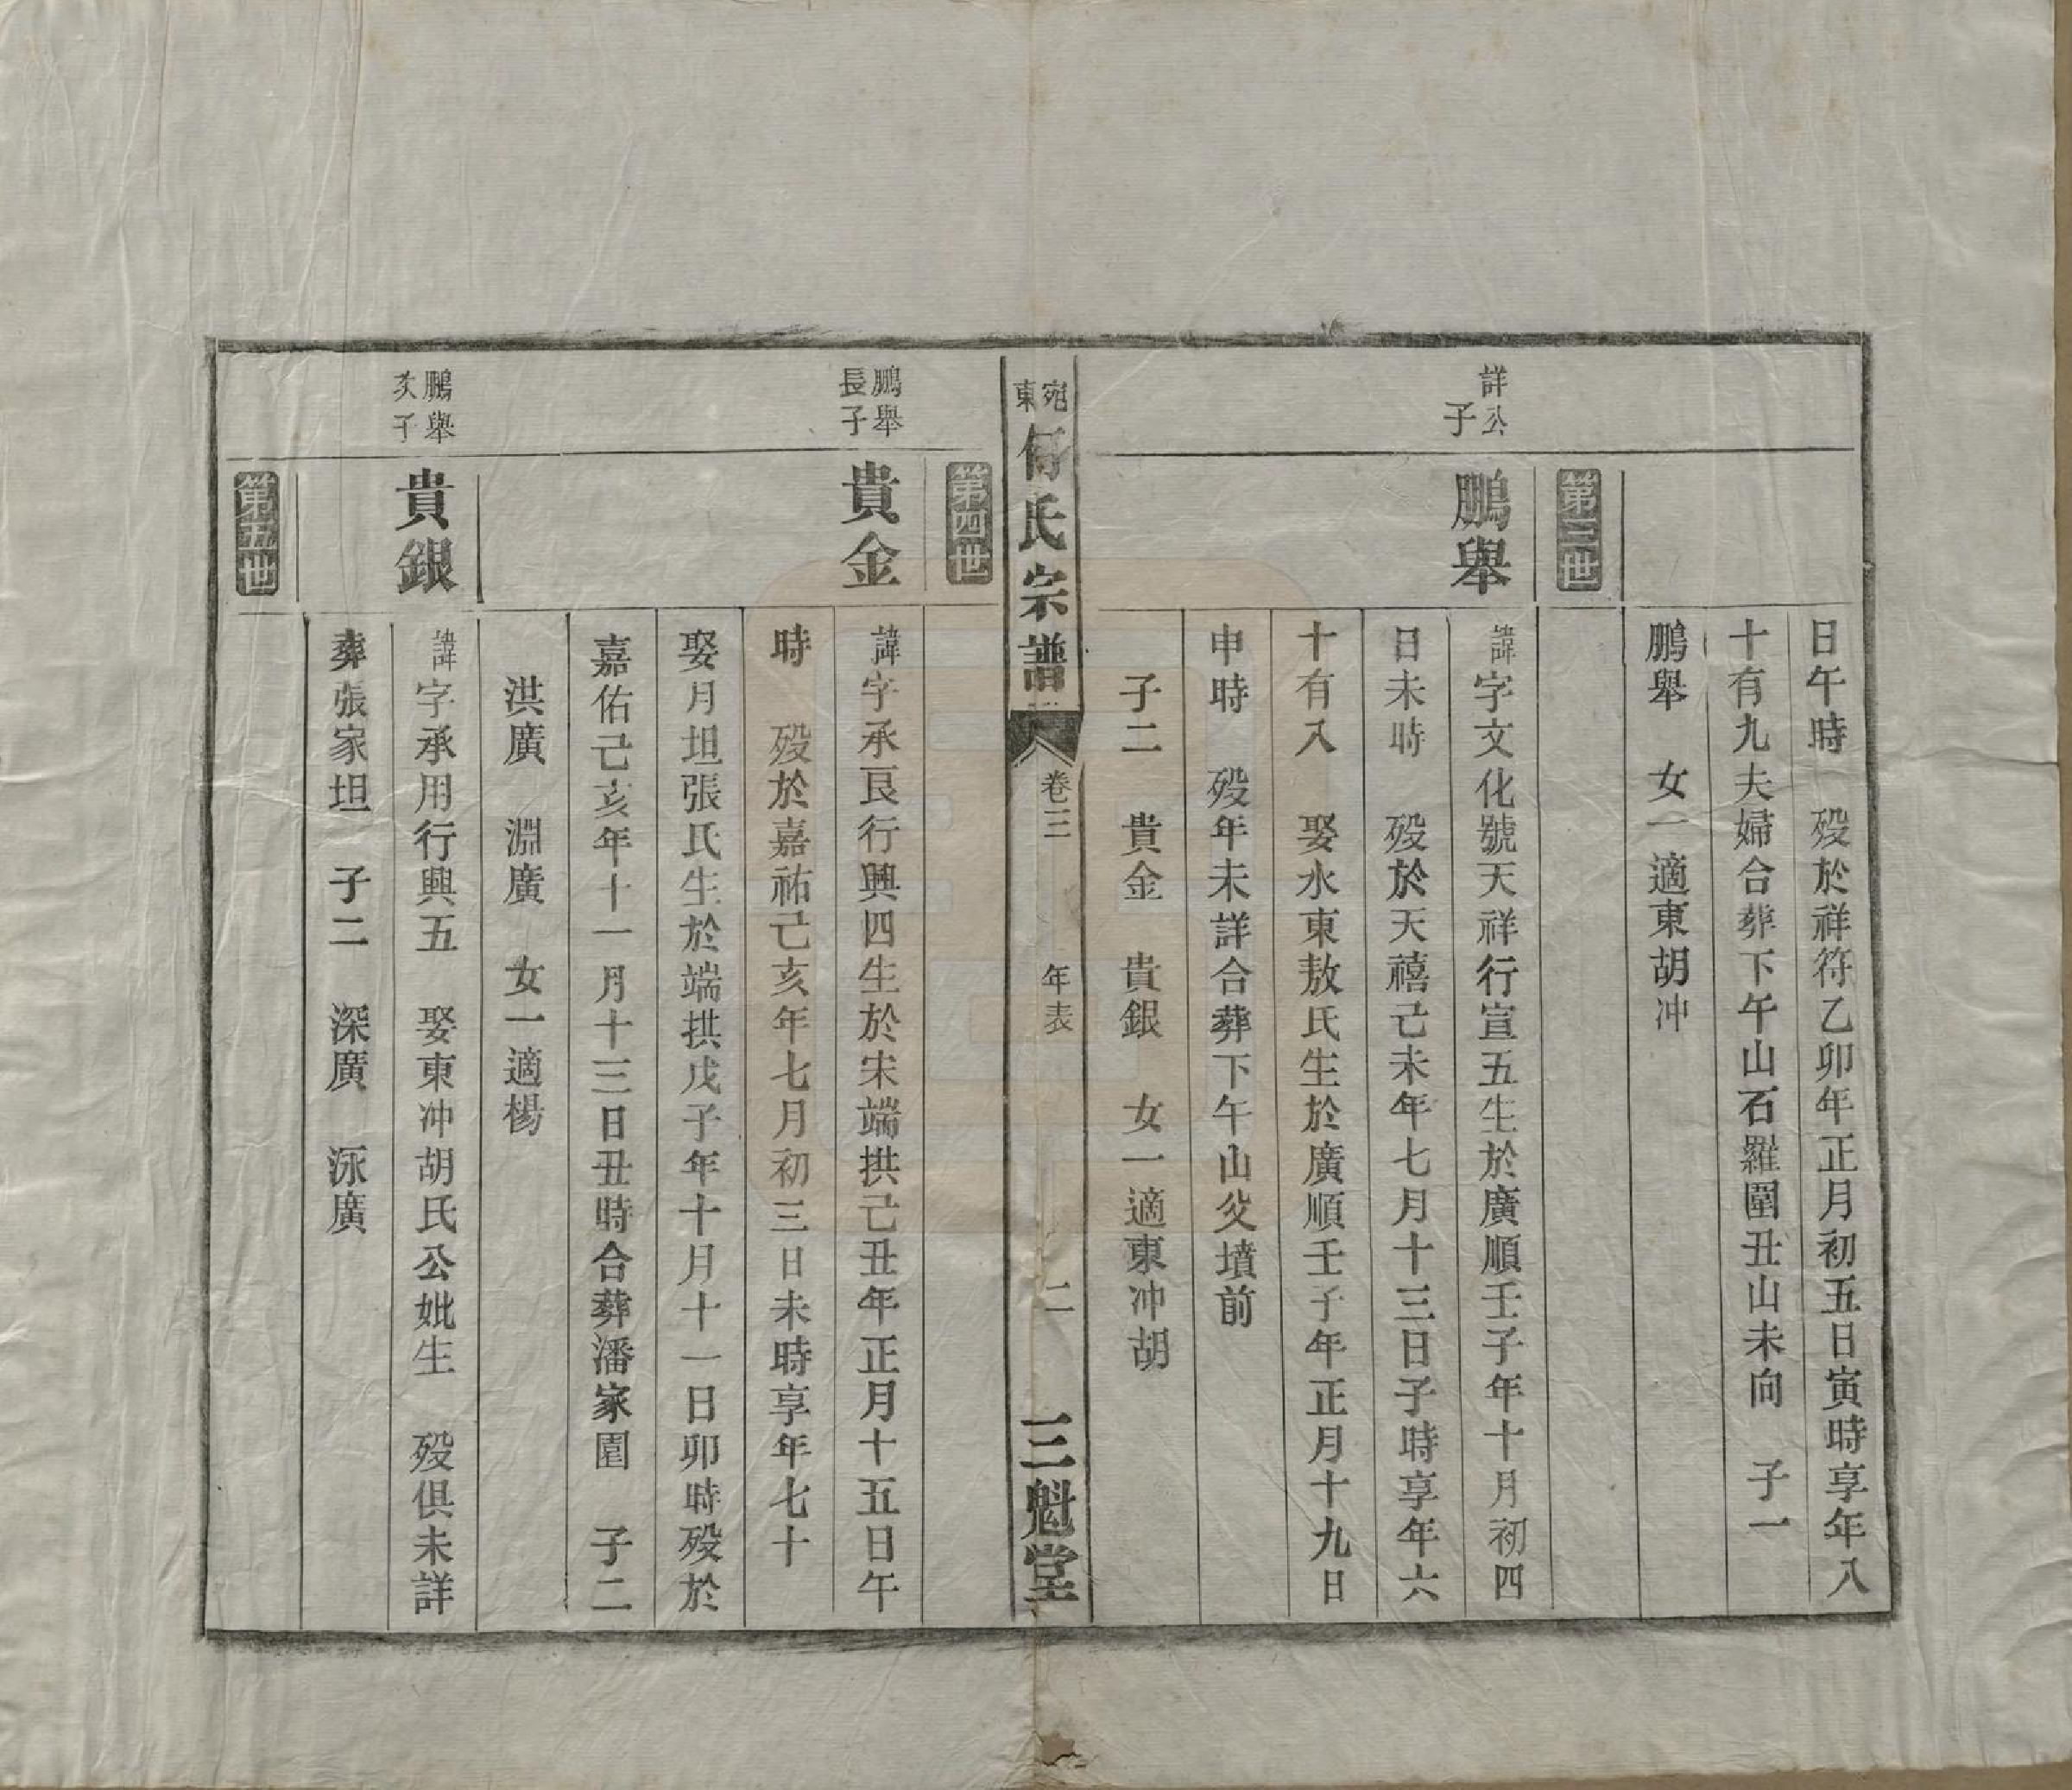 日午時 歿於祥符乙卯年正月初五日寅時享年八
十有九夫婦合葬下午山石羅圍丑山未向 子一
鵬舉 女一適東胡冲
第三世
詳公
子
鵬舉
諱字文化號天祥行宣五生於廣順壬子年十月初四
日未時 歿於天禧己未年七月十三日子時享年六
十有八 娶水東敖氏生於廣順壬子年正月十九日
申時 歿年未詳合葬下午山父墳前
子二 貴金 貴銀 女一適東冲胡
宛東何氏宗譜 卷三 年表 二 三魁堂
第四世
鵬舉
長子
貴金
諱字承良行興四生於宋端拱己丑年正月十五日午
時 歿於嘉祐己亥年七月初三日未時享年七十
娶月坦張氏生於端拱戊子年十月十一日卯時歿於
嘉佑己亥年十一月十三日丑時合葬潘家園 子二
洪廣 淵廣 女一適楊
鵬舉
次子
貴銀
諱字承用行興五 娶東冲胡氏公妣生 歿俱未詳
葬張家坦 子二 深廣 泳廣
第五世